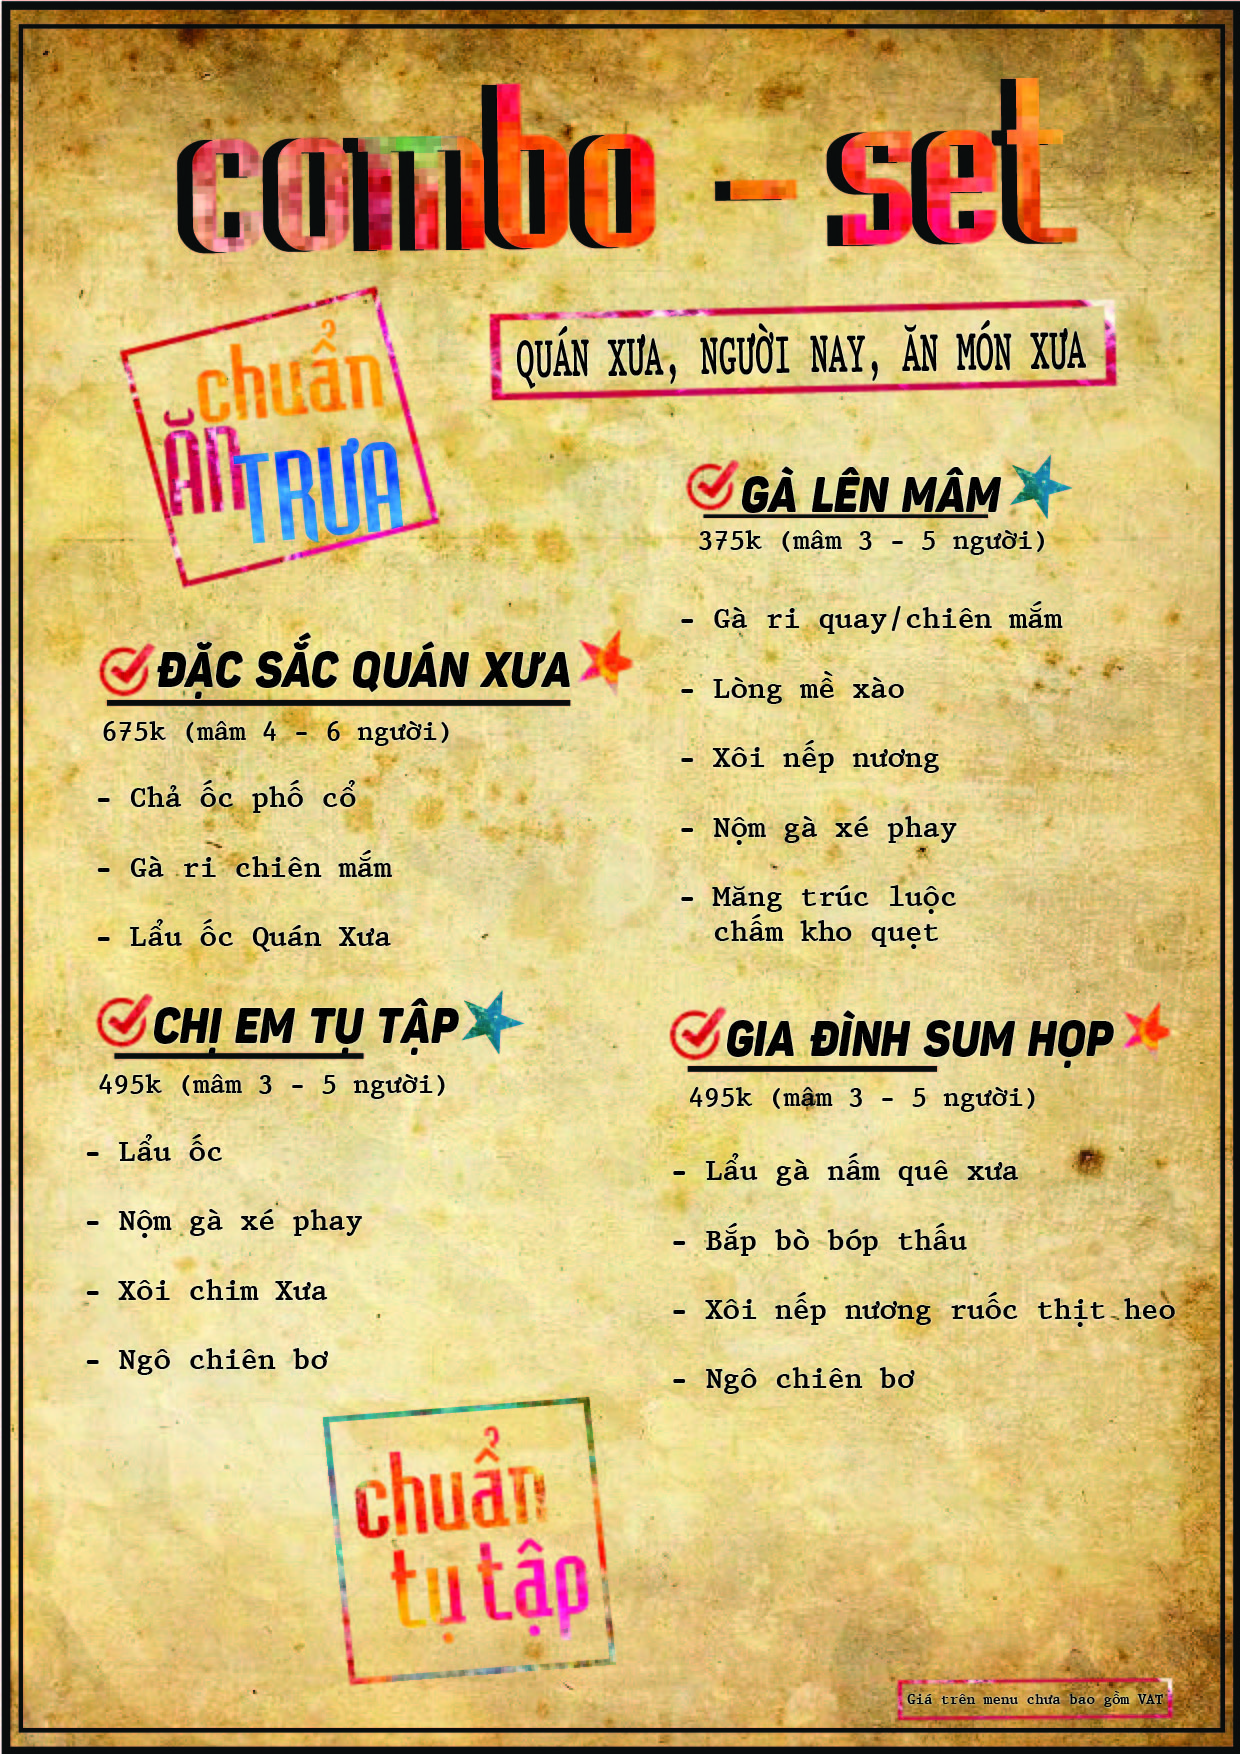 combo - set
chuẩn
ĂN TRƯA
QUÁN XƯA, NGƯỜI NAY, ĂN MÓN XƯA
ĐẶC SẮC QUÁN XƯA
675k (mâm 4 - 6 người)
- Chả ốc phố cổ
- Gà ri chiên mắm
- Lẩu ốc Quán Xưa
CHỊ EM TỤ TẬP
495k (mâm 3 - 5 người)
- Lẩu ốc
- Nộm gà xé phay
- Xôi chim Xưa
- Ngô chiên bơ
GÀ LÊN MÂM
375k (mâm 3 - 5 người)
- Gà ri quay/chiên mắm
- Lòng mề xào
- Xôi nếp nương
- Nộm gà xé phay
- Măng trúc luộc
chấm kho quẹt
GIA ĐÌNH SUM HỌP
495k (mâm 3 - 5 người)
- Lẩu gà nấm quê xưa
- Bắp bò bóp thấu
- Xôi nếp nương ruốc thịt heo
- Ngô chiên bơ
chuẩn
tụ tập
Giá trên menu chưa bao gồm VAT